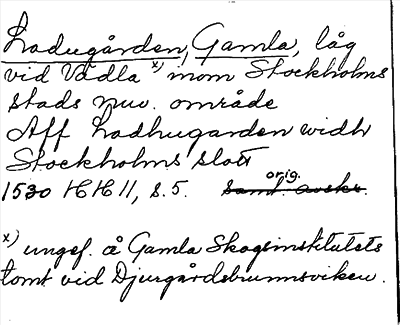 Ladugården, Gamla, låg
vid Vädla x) inom Stockholms
stads nuv. område
Aff Ladhugarden widh
Stockholms slott
1530 HH 11, s. 5. orig. samt. avskr.
x) ungef. å Gamla Skogsinstitutets
tomt vid Djurgårdsbrunnsviken.